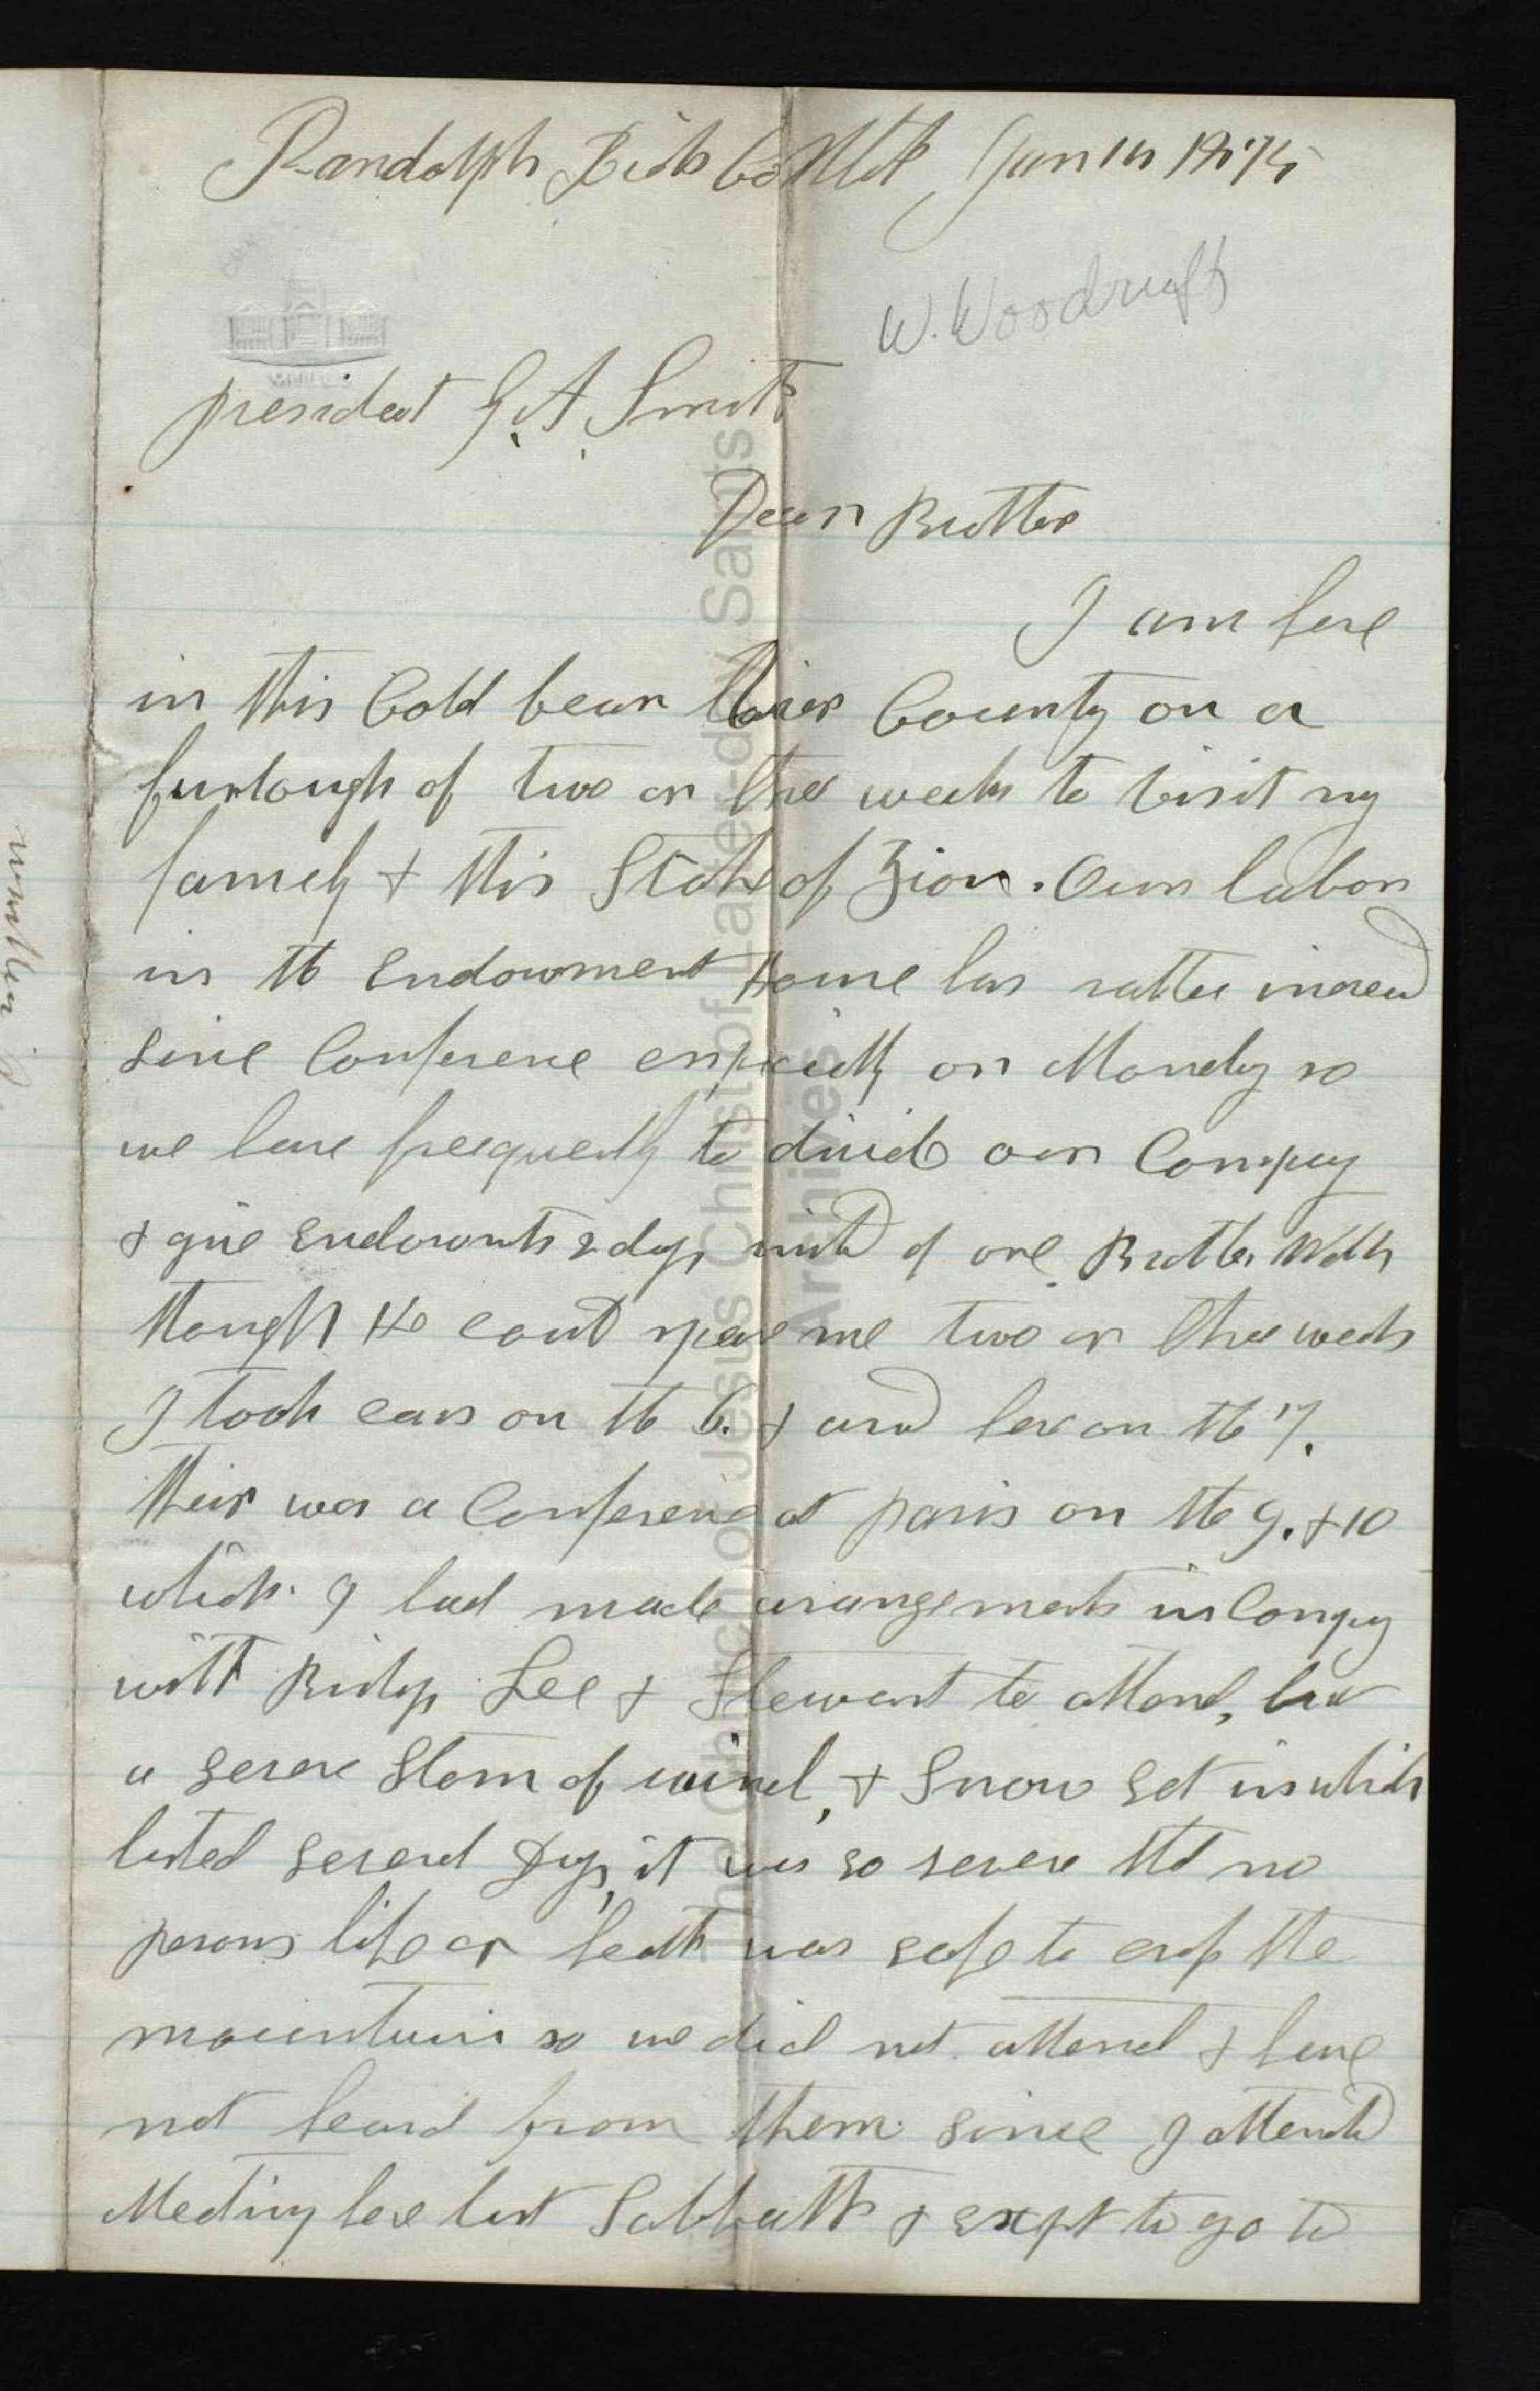 Randolph Rich Co Utah Jan 14 1875
W. Woodruff
president G. A. Smith
Dear Brother
I am here
in this Cold bear River County on a
furlough of two or three weeks to visit my
family & this Stake of Zion. Our labor
in the Endowment House has rather increasd
since Conference especially on Monday so
we have freequently to divide our Company
& give Endowmts 2 days insted of one. Brother Wells
though He could spare me two or three weeks
I took cars on the 6. & arrd here on the 7.
their was a Conference at paris on the 9. & 10
which I had made arangements in Company
with Bishps Lee & Stewart to attend, but
a severe Storm of wind, & Snow set in which
lasted severel Days, it was so severe that no
persons life or health was safe to cross the
mountains so we did not attend & have
not heard from them since I attended
Meeting here last Sabbath & except to go to
The Church of Jesus Christ of Latter-day Saints
Archives